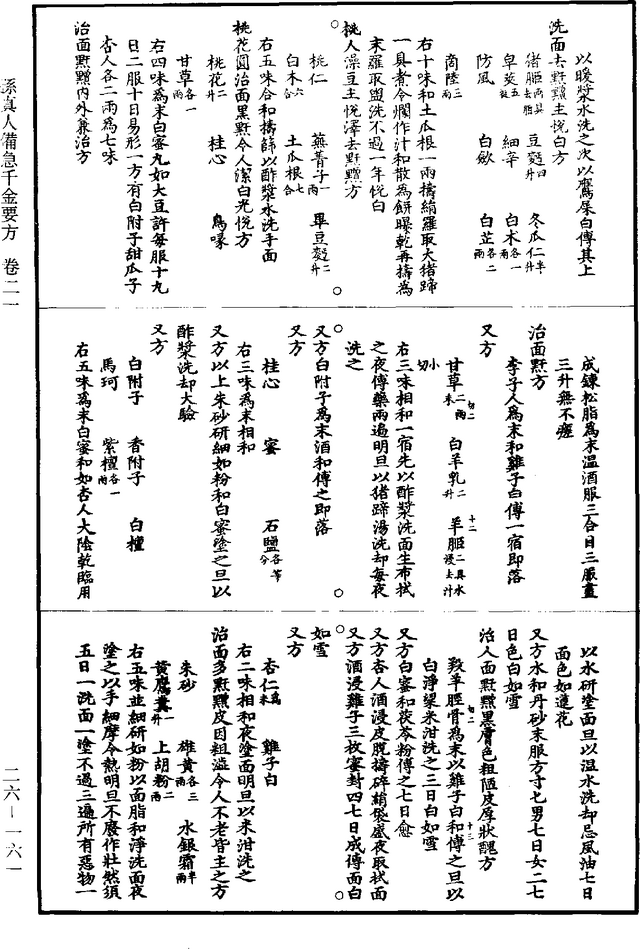 以暖漿水洗之次以鷹屎白傅其上
洗面去䵟䵳主悅白方
猪脏兩具去脂 豆麪四升 冬瓜仁半升
皁莢五挺 細辛 白术各一兩
防風 白蘞 白芷各二兩
商陸三兩
右十味和土瓜根一兩擣絹羅取大猪蹄
一具煮令爛作汁和散為餅曝乾再擣為
末羅取盥洗不過一年悅白
桃人澡豆主悅澤去䵟䵳方
桃仁 蕪菁子一兩 畢豆麪二升
白木六合 土瓜根七合
右五味合和擣篩以酢漿水洗手面
桃花圓治面黑䵟令人潔白光悅方
桃花二升 桂心 烏喙
甘草各一兩
右四味為末白蜜丸如大豆許每服十九
日二服十日易形一方有白附子甜瓜子
杏人各二兩為七味
治面䵟䵳内外兼治方
孫真人備急千金要方 卷二一
成鍊松脂為末溫酒服三合日三服盡
三升無不瘥
治面䵟方
李子人為末和雞子白傅一宿即落
又方
甘草二兩末 白羊乳二升 羊脏二具水浸去汁
小切
右三味相和一宿先以酢漿洗面生布拭
之夜傅藥兩遍明旦以猪蹄湯洗却每夜
洗之
又方白附子為末酒和傅之即落
又方
桂心 蜜 石鹽各等分
右三味為末相和
又方以上朱砂研細如粉和白蜜塗之旦以
酢漿洗却大驗
又方
白附子 香附子 白檀
馬珂 紫檀各一兩
右五味為末白蜜和如杏人大陰乾臨用
以水研塗面旦以温水洗却忌風油七日
面色如蓮花
又方水和丹砂末服方寸七男七日女二七
日色白如雪
治人面䵟䵳黑膚色粗陋皮厚狀醜方
羖羊脛骨為末以雞子白和傅之旦以
白淨粱米泔洗之三日白如雪
又方白蜜和茯苓粉傅之七日愈
又方杏人酒浸皮脫擣碎絹袋盛夜取拭面
又方酒浸雞子三枚蜜封四七日成傅面白
如雪
又方
杏仁為末 雞子白
右二味相和夜塗面明旦以米泔洗之
治面多䵟䵳皮因粗澁令人不老皆主之方
朱砂 雄黃各三兩 水銀霜半兩
黃鷹糞一升 上胡粉二兩
右五味並細研如粉以面脂和淨洗面夜
塗之以手細摩令熱明旦不廢作壯然須
五日一洗面一塗不過三遍所有惡物一
二六-一六一